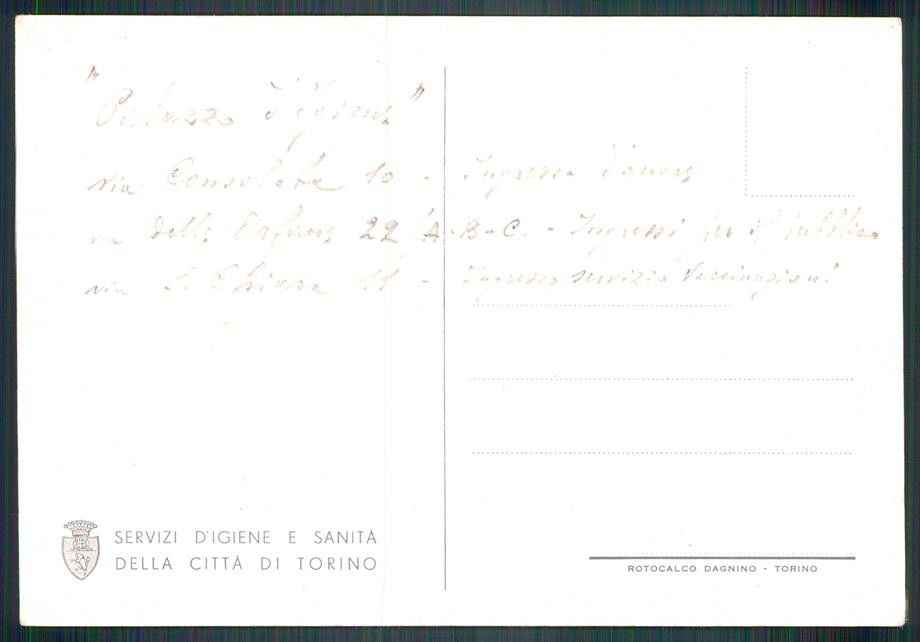 "Palazzo d'Igiene"
via Consolata 10 - Ingresso d'onore
via delle Orfane 22 A-B-C. - Ingressi per il pubblico
via S. Chiara 11 - Ingresso servizio Vaccinazioni
SERVIZI D'IGIENE E SANITÀ
DELLA CITTÀ DI TORINO
ROTOCALCO DAGNINO - TORINO